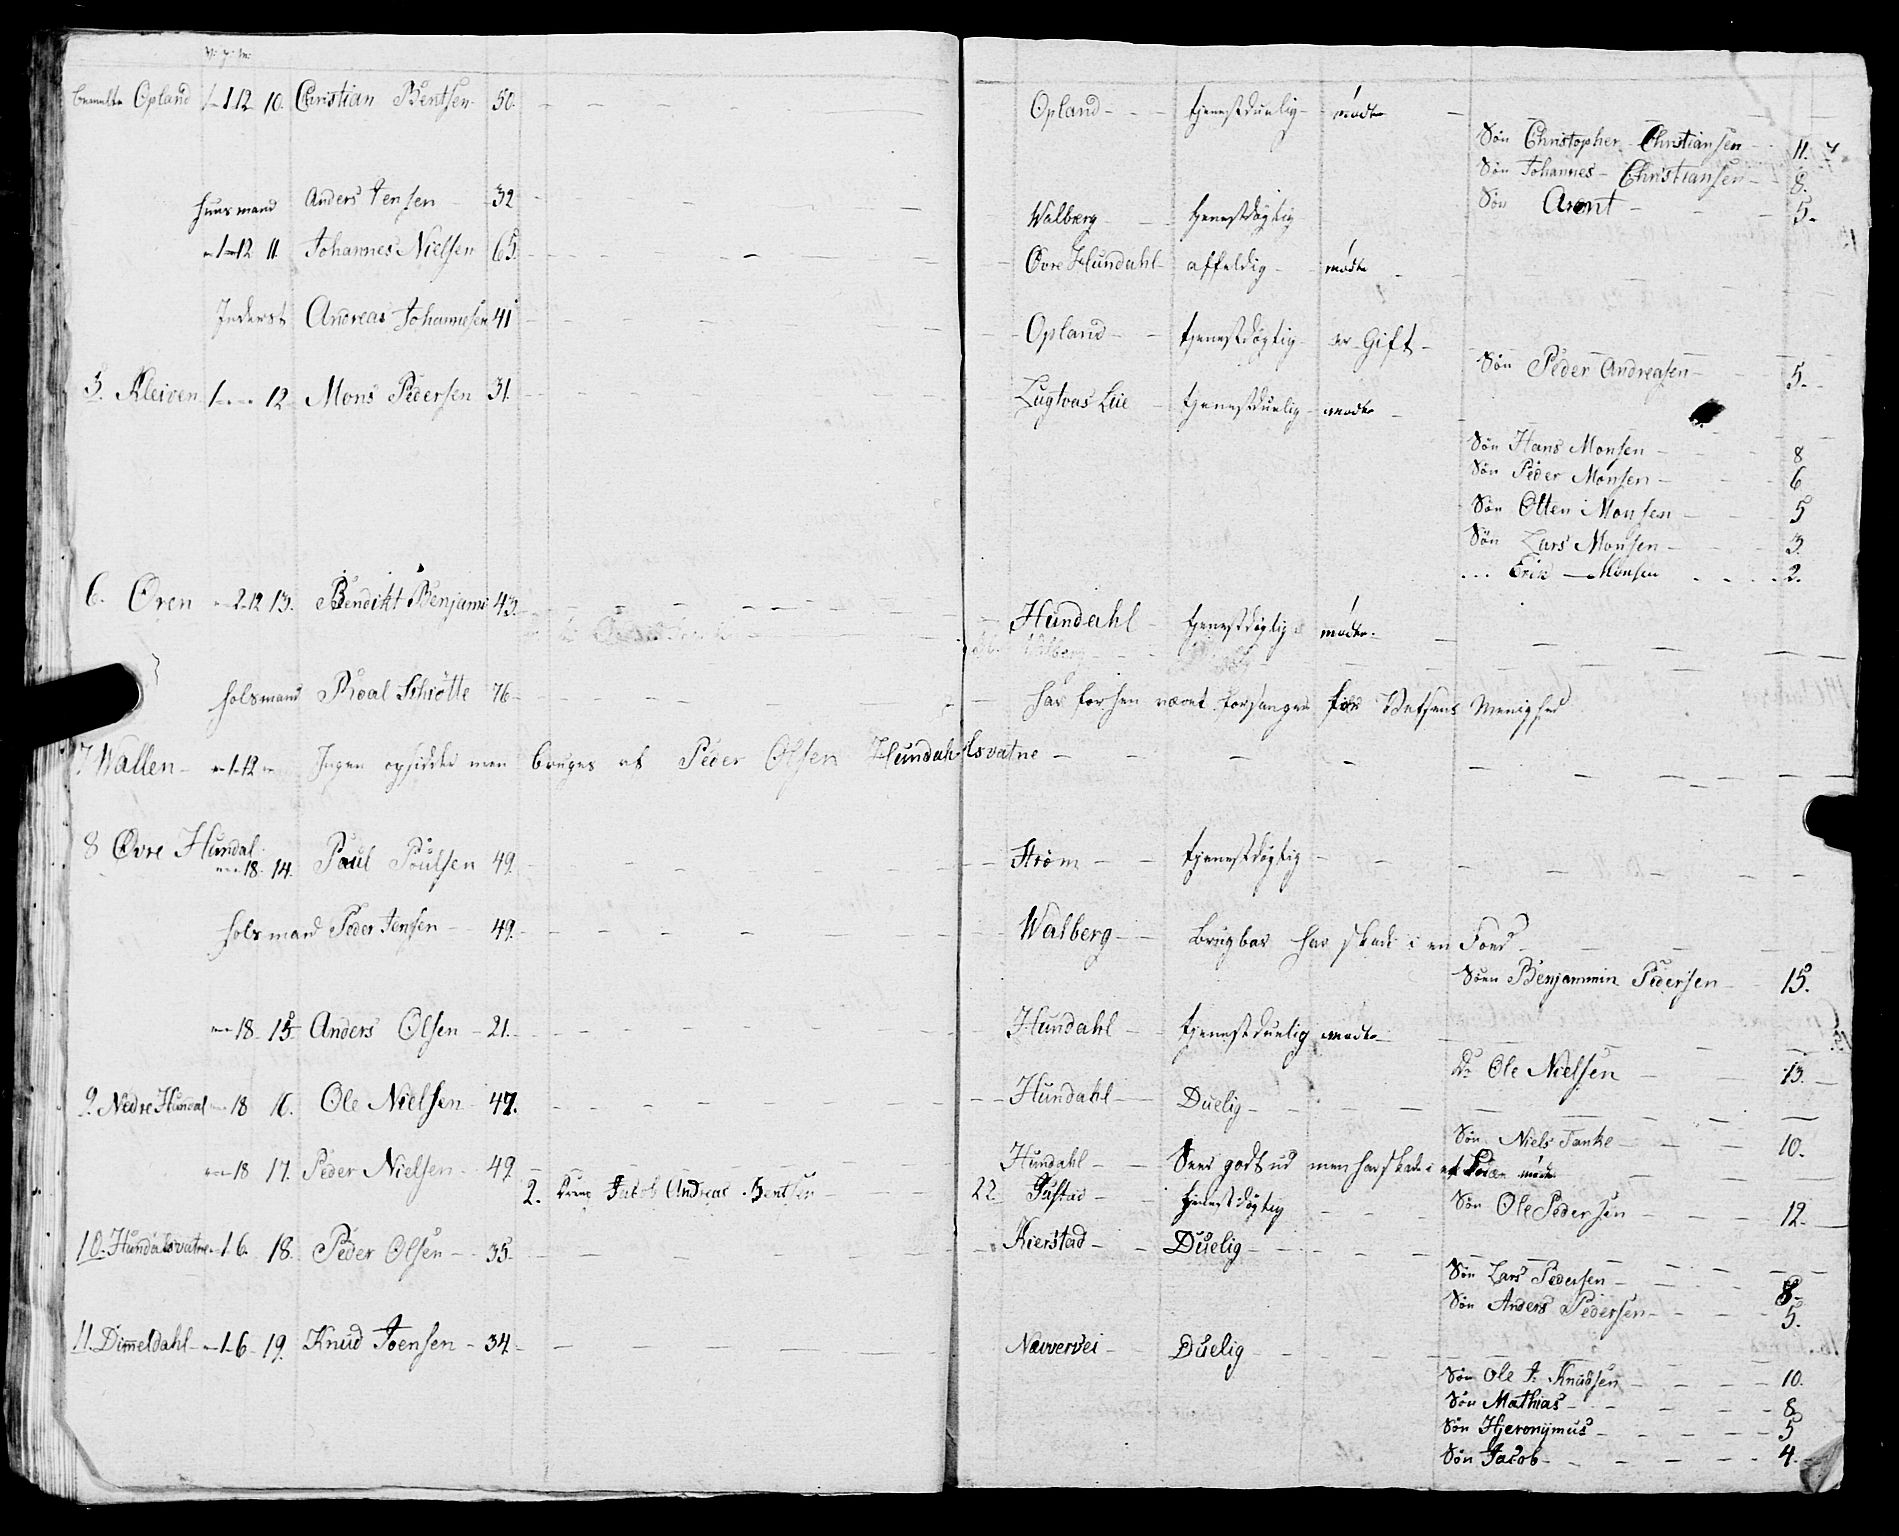 V. p. m.
bemelte Opland 1-1-12 10. Christian Bentsen 50. Opland tjenestduelig mødte
Søn Christopher Christiansen 11.
Søn Johannes Christiansen 8.
Søn Arent 5.
huusmand Anders Jensen 32 Walberg tjenestdøgtig
1-12 11. Johannes Nielsen 65. Øvre Hundahl affeldig mødte
Inderst Andreas Johannesen 41 Opland tjenestdøgtig er Gift
Søn Peder Andreasen 5.
5. Kleiven 1 12 Mons Pedersen 31. Lugtvas Lie tjenestduelig mødte
Søn Hans Monsen 8
Søn Peder Monsen 6
Søn Otten Monsen 5
Søn Lars Monsen 3.
... Erik Monsen 2.
6. Øren 2-12 13. Bendikt Benjami 43. Hundahl tjenestdøgtig mødte.
Walberg
holsmand Roal Schrötte 76 har forhen været forsanger for Vefsens Menighed
7 Wallen 1-12 Ingen opsidder men bruges af Peder Olsen Hundahlsvatne
8 Øvre Hundal
18. 14. Paul Poulsen 49. Strøm tjenestdøgtig
holsmand Peder Jensen 49. Walberg Brugbar har skade i en Foed
Sønn Benjammin Pedersen 15.
18. 15 Anders Olsen 21. Hundahl tjenestduelig mødte
Do Ole Nielsen 13.
9. Nedre Hundal 18 16. Ole Nielsen 47. Hundahl Duelig
Søn Niels Tanke 10.
18 17. Peder Nielsen 49. Hundahl Seer godt ud men har skade i et mødte
2. Dreng Jacob Andreas Bentsen 22 Pustad tjenestdøgtig
Søn Ole Pedersen 12.
10. Hundalsvatne 1-6. 18. Peder Olsen 35. Kierstad Duelig
Søn Lars Pedersen 8.
Søn Anders Pedersen 5.
11. Dimmeldahl 1-6 19. Knud Joensen 34. Navvervei Duelig
Søn Ole J. Knudsen 10.
Søn Mathias 8
Søn Hjeronÿmus 5
Søn Jacob 4.